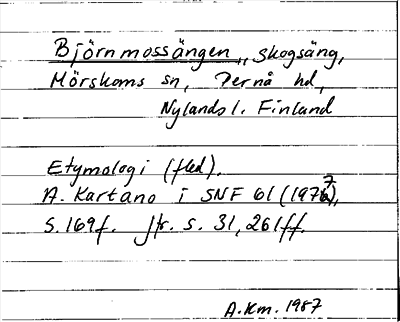 Björnmossängen, skogsäng,
Mörskoms sn, Pernå hd,
Nylands l. Finland
Etymologi (fled).
A. Kartano i SNF 61 (1977),
s. 169f. Jfr. s. 31, 261ff.
A.Km. 1987